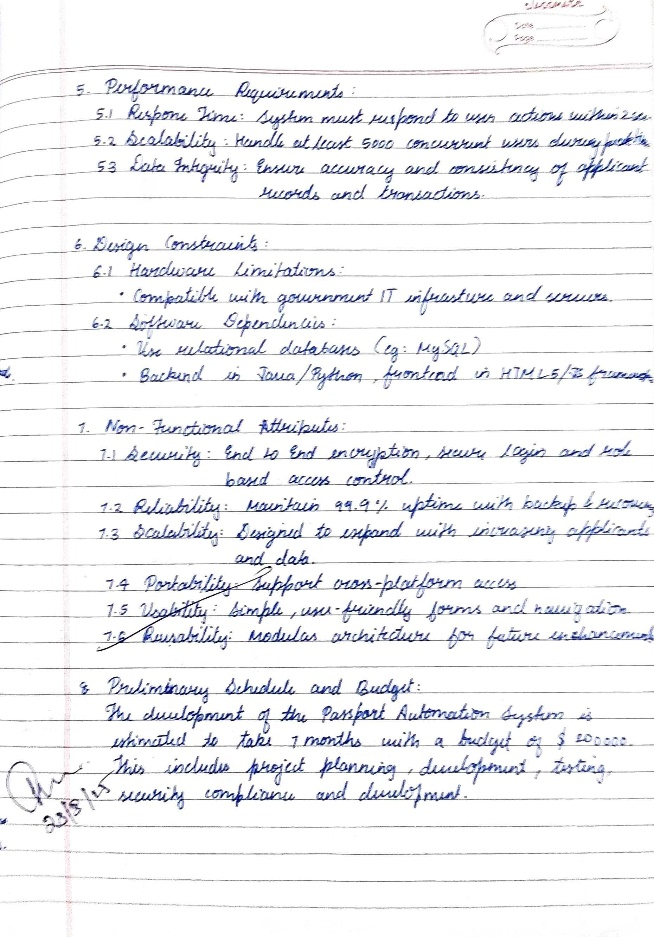 Date
Page
5. Performance Requirements:
5.1 Respone Time: System must respond to user actions within 2 sec
5.2 Scalability: Handle at least 5000 concurrent users during
5.3 Data Integrity: Ensure accuracy and consistency of applicant
records and transactions.
6. Design Constraints:
6.1 Hardware Limitations:
• Compatible with government IT infrasture and servers.
6.2 Software Dependencies:
• Use relational databases (eg: MySQL)
• Backend in Java/Python, frontend in HTML5/JS
7. Non-Functional Attributes:
7.1 Security: End to End encryption, secure login and role
based access control.
7.2 Reliability: Maintain 99.9% uptime with backup & recovery
7.3 Scalability: Designed to expand with increasing applicants
and data.
7.4 Portability: Support cross-platform access
7.5 Usability: Simple, user-friendly forms and navigation
7.6 Reusability: Modular architecture for future enhancements
8 Preliminary Schedule and Budget:
The development of the Passport Automation System is
estimated to take 7 months with a budget of $ 200000.
This includes project planning, development, testing,
security compliance and development.
23/8/25